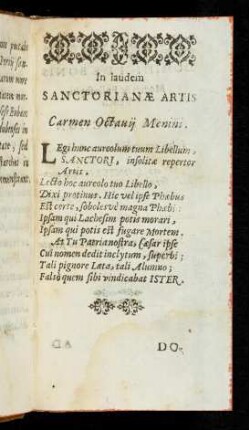 In laudem
SANCTORIANÆ ARTIS
Carmen Octavij Menini.
LEgi hunc aureolum tuum Libellum,
SANCTORI, insolitæ repertor
Artis.
Lecto hoc aureolo tuo Libello,
Dixi protinus. Hic vel ipse Phœbus
Est certe, sobolesve magna Phœbi:
Ipsam qui Lachesim potis morari,
Ipsam qui potis est fugare Mortem.
At Tu Patria nostra, Cæsar ipse
Cui nomen dedit inclytum, superbi;
Tali pignore Læta, tali Alumno;
Falsò quem sibi vindicabat ISTER.
DO-